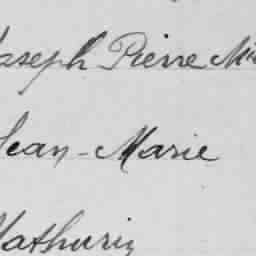 Joseph Pierre
Jean-Marie
Mathurin